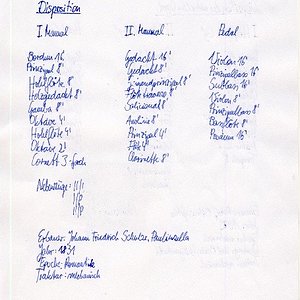 Disposition
I Manual
Bordun 16'
Prinzipal 8'
Hohlflöte 8'
Holzgedackt 8'
Gamba 8'
Oktave 4'
Hohlflöte 4'
Oktave 2'
Cornett 3-fach
II. Manual
Gedackt 16'
Gedackt 8'
Flöte 8'
Salicional 8'
Prinzipal 4'
Flöte 4'
Clarinette 8'
Pedal
Violon 16'
Prinzipalbass 16'
Subbass 16'
Violon 8'
Prinzipalbass 8'
Bassflöte 8'
Posaune 16'
Nebenzüge: II/I
I/P
II/P
Erbauer: Johann Friedrich Schulze, Paulinzella
Jahr: 1831
Epoche: Romantik
Traktur: mechanisch